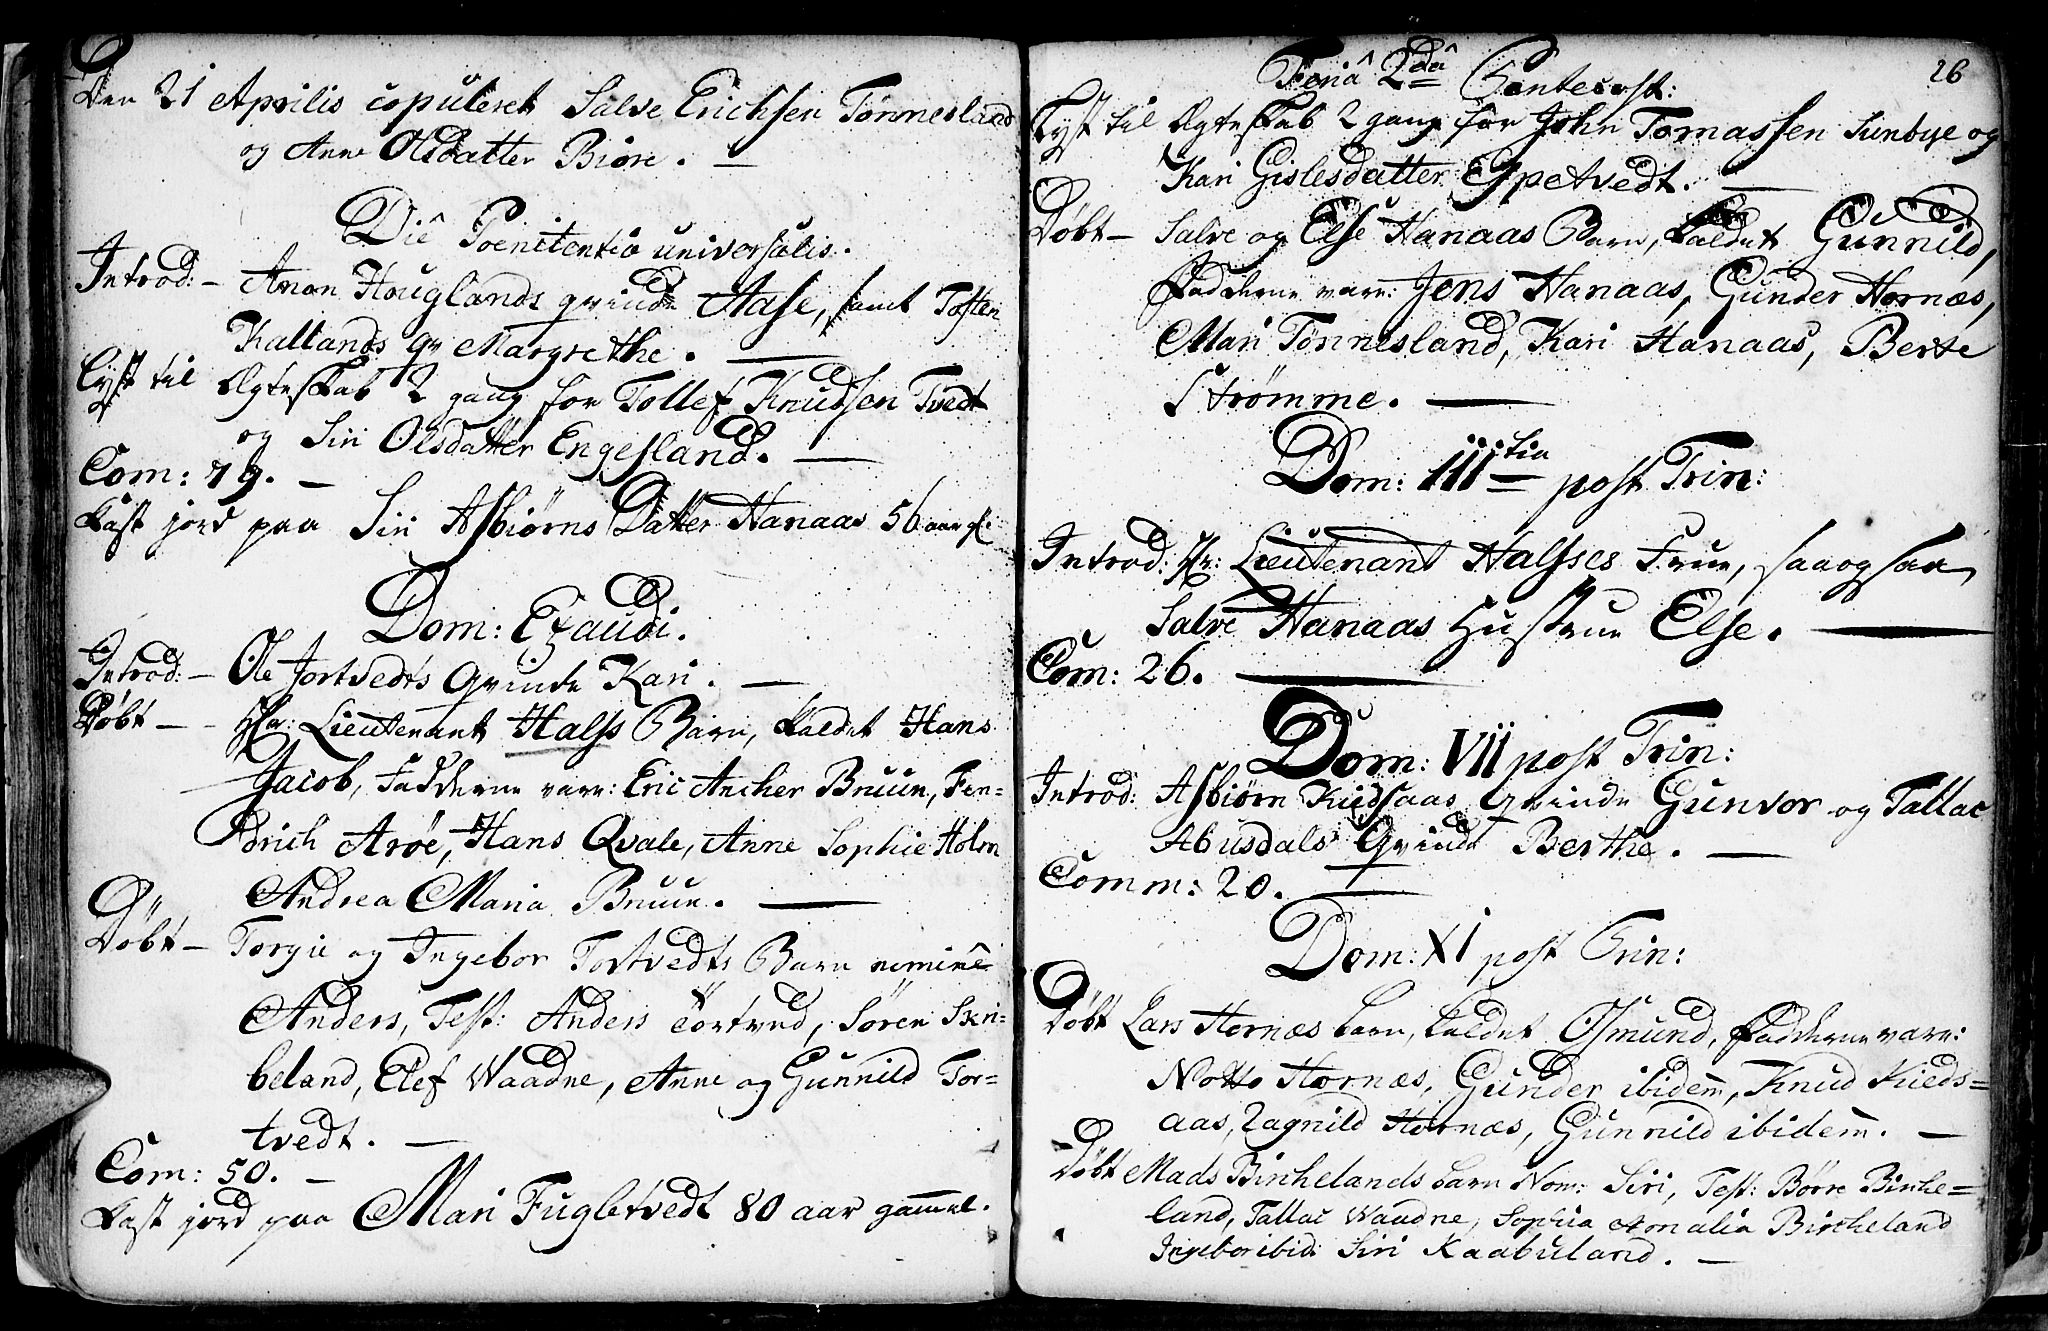 Den 21 Aprilis copuleret Salve Erichsen Tønnesland
og Anne Olsdatter Biøre. —
Diê Poenitentiæ universalis.
Introd: – Anon Houglands qvinde Aase, samt Tosten
Kallands qv Margrethe. —
Lyst til Ægteskab 2 gang for Tollef Knudsen Tvedt
og Siri Olsdatter Engesland. —
Com: 79. —
Kast jord paa Siri Asbiørns Datter Hanaas 56 aar gl:
Dom: Exaudi.
Introd: – Ole Jortvedts Qvinde Kari. —
Døbt – – Hr: Lieutenant Halss Barn, kaldet Hans
Jacob, Fadderne vare: Eric Ancher Bruun, Fen=
drich Arøe, Hans Qvale, Anne Sophie Holm
Andrea Maria Bruun. —
Døbt – Torgie og Ingebor Tortvedts Barn nominê
Anders, Test: Anders Tortved, Søren Skri=
beland, Elef Waadne, Anne og Gunnild Tor=
tvedt. —
Com: 50. —
Kast jord paa Mari Fugletvedt 80 aar gammel.
26
Feriâ 2dâ Pentecost:
Lyst til Ægteskab 2 gang for John Tomassen Sunbye og
Kari Gislesdatter Espetvedt. —
Døbt – Salve og Else Hanaas Barn, kaldet Gunnild,
Fadderne vare: Jens Hanaas, Gunder Hornæs,
Mari Tønnesland, Kari Hanaas, Berte
Strømme. —
Dom: IIItia post Trin:
Introd: Hr: Lieutenant Halsses Frue, saaogsaa
Salve Hanaas Hustrue Else. —
Com: 26. —
Dom: VII post Trin:
Introd: Asbiørn Kiedsaas Qvinde Gunvor og Tallac
Abusdals Qvinde Berthe. —
Comm: 20. —
Dom: XI post Trin:
Døbt Lars Hornæs barn, kaldet Osmund, Fadderne vare:
Notto Hornæs, Gunder ibidem, Knud Kieds=
aas, Ragnild Hornæs, Gunnild ibidem. —
Døbt Mads Birchelands barn Nom: Siri, Test: Børre Birche=
land, Tallac Waadne, Sophia Amalia Bircheland
Ingebor ibid: Siri Kaabuland. —